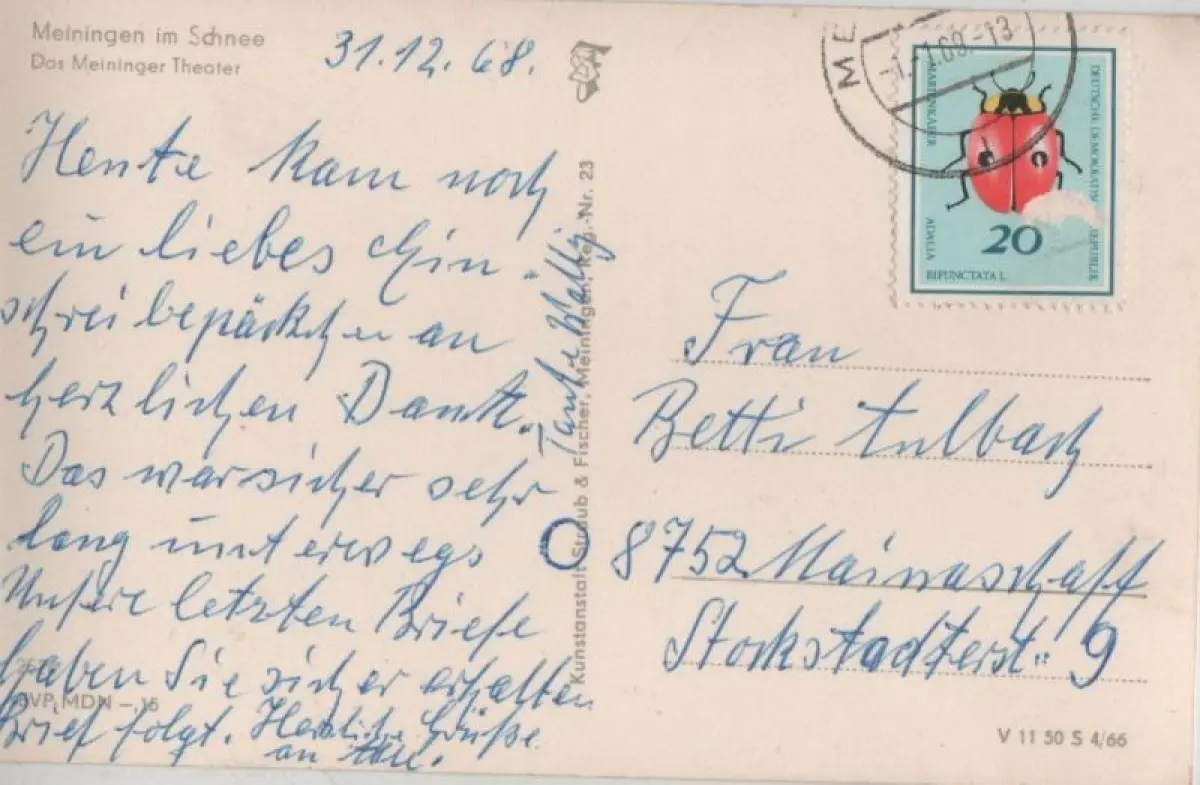 Meiningen im Schnee
Das Meininger Theater
31.12.68.
Heute kam noch
ein liebes Ein-
schreibepäckchen an
herzlichen Dank.
Das war sicher sehr
lang unterwegs
Unsere letzten Briefe
haben Sie sicher erhalten
Brief folgt. Herzliche Grüße
an alle.
Tante
Kunstanstalt Straub & Fischer, Meiningen, Reg.-Nr. 23
EVP MDN -,15
ME
-1.-1.69.-13
MARIENKÄFER
ADALIA
BIPUNCTATA L.
DEUTSCHE DEMOKRATISCHE REPUBLIK
20
Frau
Betti
8752 Mainaschaff
Stockstadterst. 9
V 11 50 S 4/66